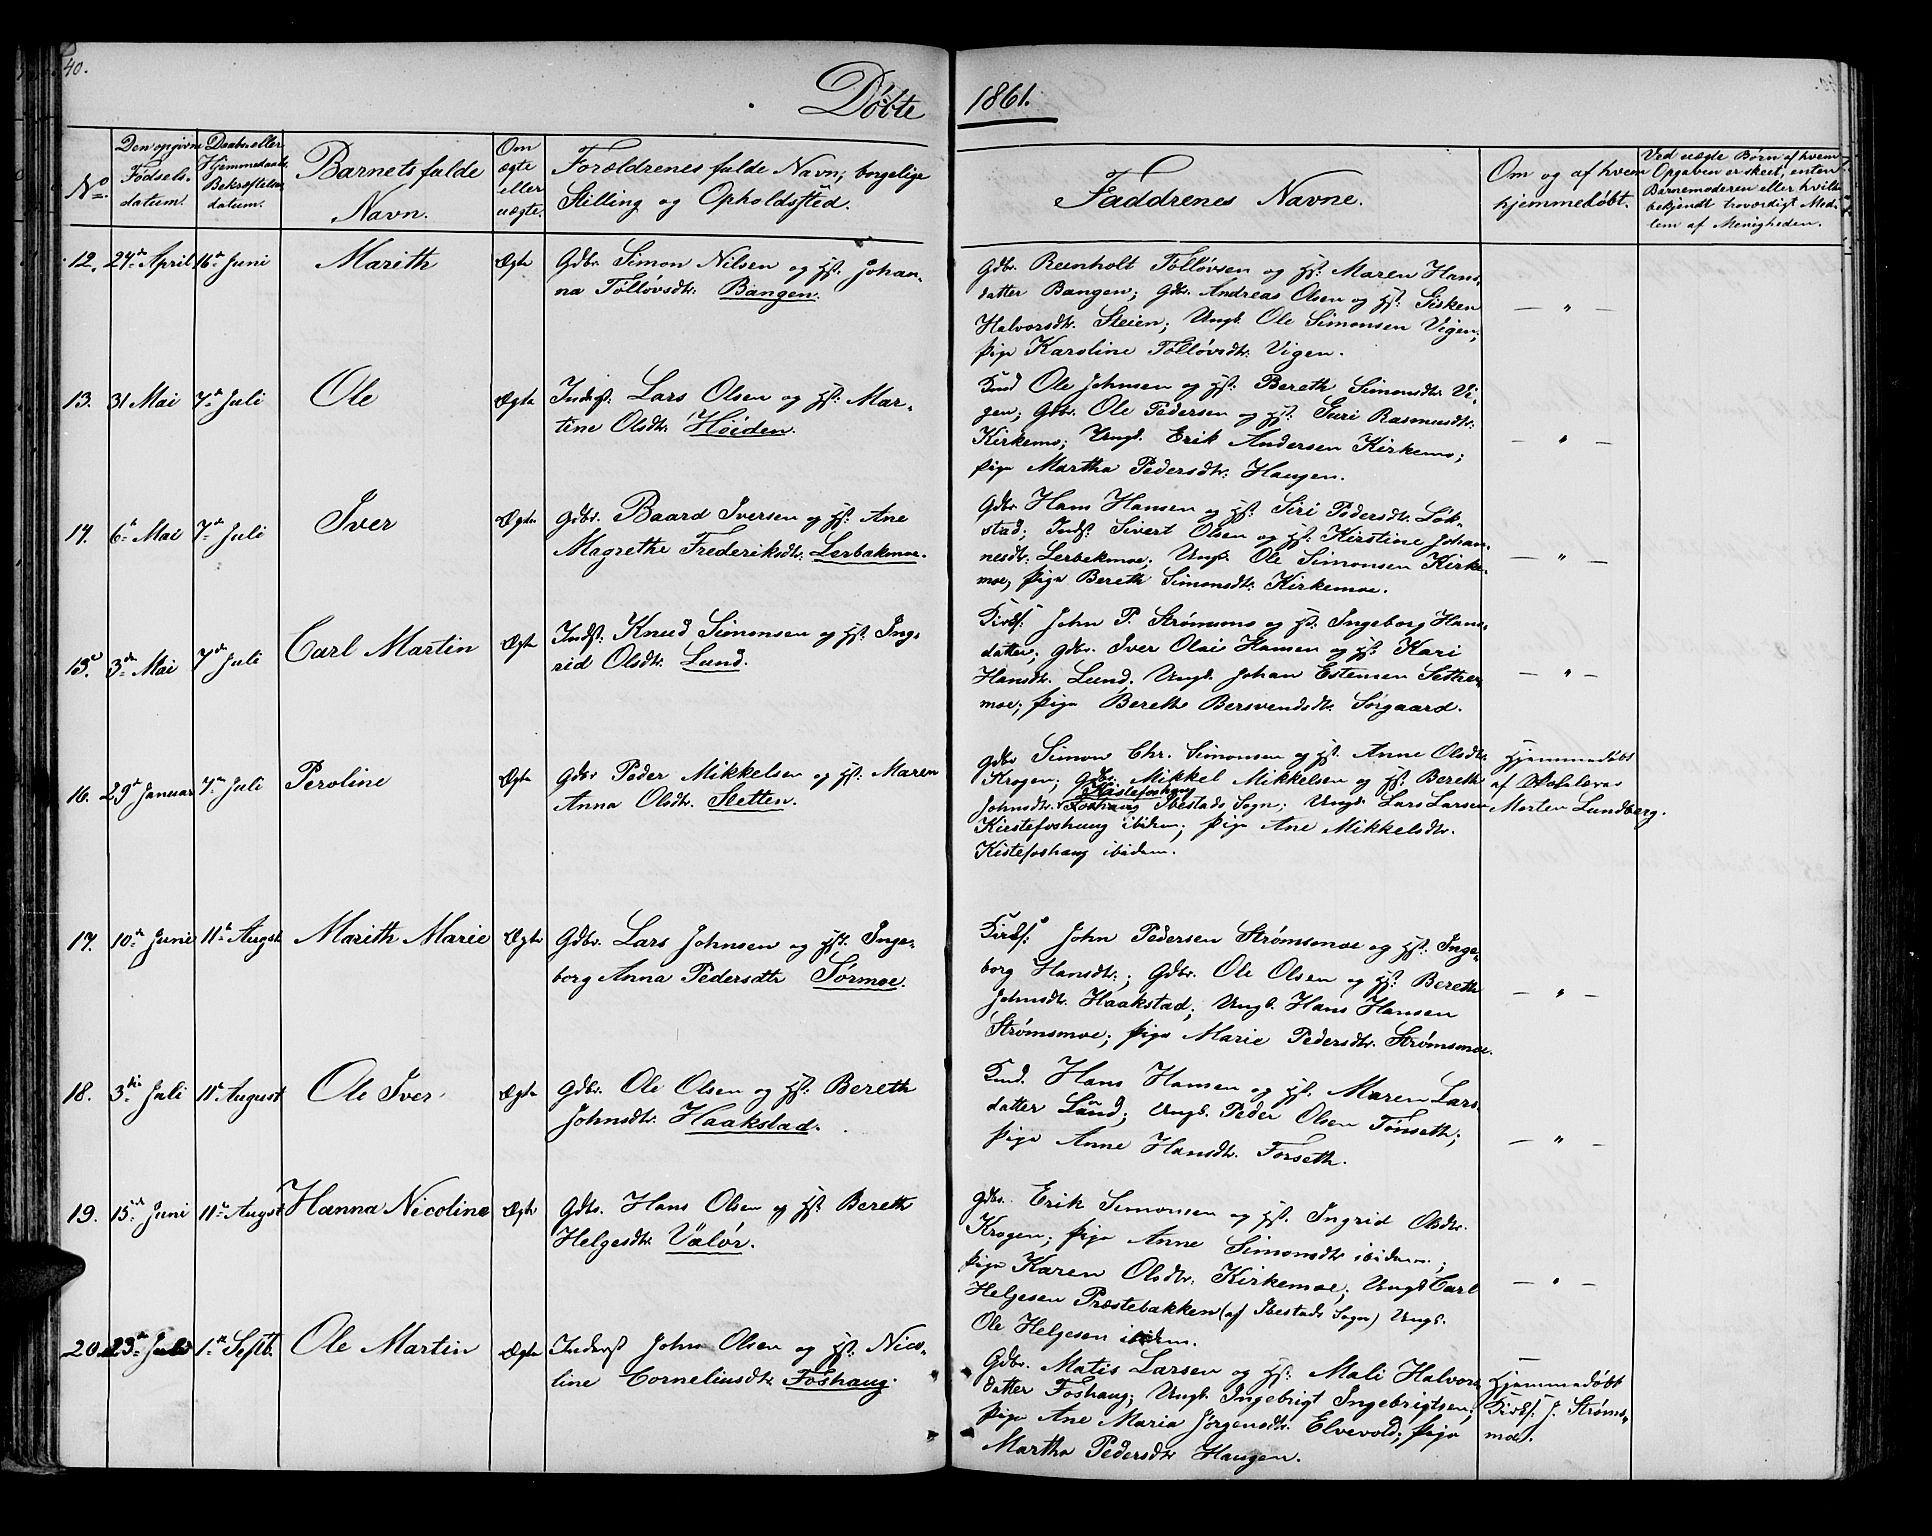 40.
Døbte
1861.
No.
Den opgivne
Fødsels-
datum.
Daabs eller
Hjemmedaabs
Bekræftelses
datum.
Barnets fulde
Navn.
Om
ægte
eller
uægte.
Forældrenes fulde Navn, borgelige
Stilling og Opholdssted.
Faddrenes Navne.
Om og af hvem
hjemmedøbt.
Ved uægte Børn af hvem
Opgaven er skeet, enten
Barnemoderen eller hvilke
bekjendt troværdigt Med-
lem af Menigheden.
12. 24de April 16de Juni Marith Ægte Gdbr. Simon Nilsen og Hst. Johan-
na Tolløvsdtr. Bangen.
Gdbr. Reenholt Tolløvsen og Hst. Maren Hans-
datter Bangen; Gdbr. Andreas Olsen og Hst. Sisken
Halvorsdtr. Steien; Ungk. Ole Simonsen Vigen;
Pige Karoline Tolløvsdtr. Vigen.
— " —
13. 31 Mai 7de Juli Ole Ægte Inderst. Lars Olsen og Hst. Mar-
tine Olsdtr. Høiden.
Kmd Ole Johnsen og Hst. Bereth Simonsdtr. Vi-
gen; Gdbr. Ole Pedersen og Hst. Guri Rasmusdtr.
Kirkemo; Ungk. Erik Andersen Kirkemo;
Pige Martha Pedersdtr. Haugen.
— " —
14. 6te Mai 7de Juli Iver Ægte Gdbr. Baard Iversen og Hst. Ane
Magrethe Frederiksdtr. Lerbakmoe.
Gdbr Hans Hansen og Hst. Siri Pedersdtr. Løk-
stad; Indst. Sivert Olsen og Hst. Kirstine Johan-
nesdtr. Lerbekmoe; Ungk. Ole Simonsen Kirke-
moe, Pige Bereth Simonsdtr. Kirkemoe.
— " —
15. 3de Mai 7de Juli Carl Martin Ægte Indst. Knud Simonsen og Hst. Ing-
rid Olsdtr. Lund.
Kirkes. John P. Strømsmo og H. Ingeborg Hans-
datter; Gdbr. Iver Olai Hansen og Hst. Kari
Hansdtr. Lund. Ungk. Johan Estensen Sether-
moe; Pige Bereth Bersvendsdtr. Sørgaard.
— " —
16. 29de Januar 7de Juli Peroline Ægte Gdbr Peder Mikkelsen og Hst. Maren
Anna Olsdtr. Sletten.
Gdbr Simon Chr. Simonsen og Hst. Anne Olsdtr.
Krogen; Gdbr. Mikkel Mikkelsen og Hst. Bereth
Kistefoshaug
Johnsdtr. Foshaug Ibestads Sogn; Ungk. Lars Larsen
Kistefoshaug ibidem; Pige Ane Mikkelsdtr.
Kistefoshaug ibidem.
Hjemmedøbt
af
Morten Lundberg.
17. 10de Juni 11te August Marith Marie Ægte Gdbr. Lars Johnsen og Hst. Inge-
borg Anna Pedersdtr Sørmoe.
Kirkes. John Pedersen Strømsmoe og Hst. Inge-
borg Hansdtr.; Gdbr. Ole Olsen og Hst. Bereth
Johnsdtr. Haakstad; Ungk. Hans Hansen
Strømsmoe; Pige Marie Pedersdtr. Strømsmoe.
— " —
18. 3die Juli 11te August Ole Iver Ægte Gdbr. Ole Olsen og Hst. Bereth
Johnsdtr. Haakstad.
Kmd. Hans Hansen og Hst. Maren Lars-
datter Lund; Ungk. Peder Olsen Tønseth;
Pige Anne Hansdtr. Forseth.
— " —
19. 15de Juni 11te August Hanna Nicoline Ægte Gdbr. Hans Olsen og Hst. Bereth
Helgesdtr. Valør.
Gdbr. Erik Simonsen og Hst. Ingrid Olsdtr.
Krogen; Pige Anne Simonsdtr ibidem;
Pige Karen Olsdtr. Kirkemoe; Ungk Carl
Helgesen Præstebakken (af Ibestads Sogn) Ungk.
Ole Helgesen ibidem.
— " —
20. 23de Juli 1ste Septb. Ole Martin Ægte Inderst John Olsen og Hst. Nico-
line Corneliusdtr. Foshaug.
Gdbr. Matis Larsen og Hst. Mali Halvors-
datter Foshaug; Ungk. Ingebrigt Ingebrigtsen;
Pige Ane Maria Jørgensdtr. Elvevold; Pige
Martha Pedersdtr Haugen.
Hjemmedøbt
Kirkes. J. Strøms-
moe.